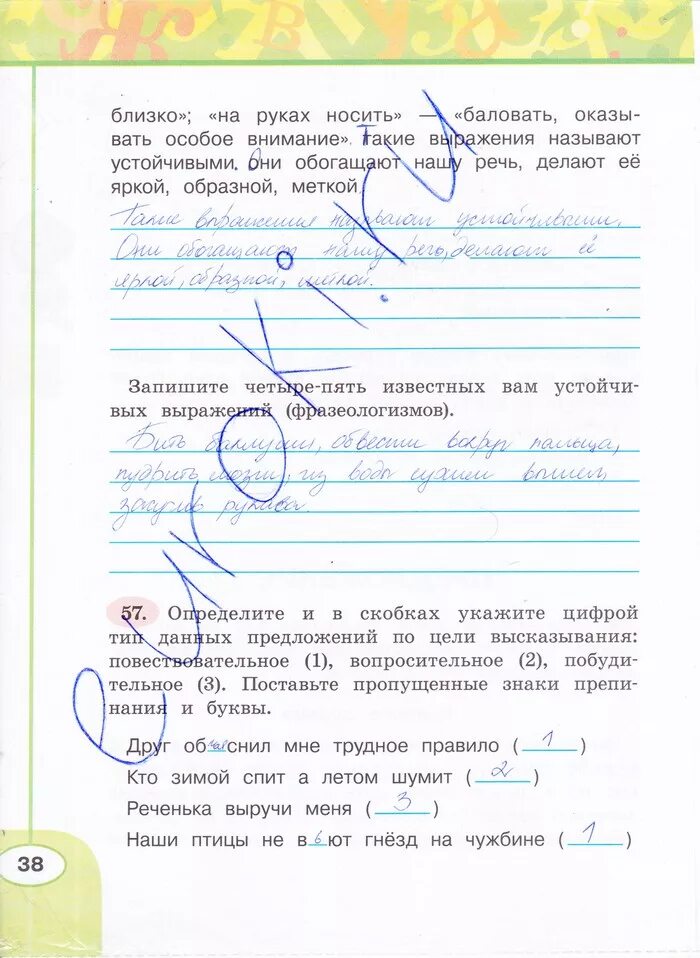 близко»; «на руках носить» — «баловать, оказы-
вать особое внимание». Такие выражения называют
устойчивыми. Они обогащают нашу речь, делают её
яркой, образной, меткой.
Такие выражения называют устойчивыми.
Они обогащают нашу речь, делают её
яркой, образной, меткой.
Запишите четыре-пять известных вам устойчи-
вых выражений (фразеологизмов).
Бить баклуши, обвести вокруг пальца,
пудрить мозги, из воды сухим вышел,
засучив рукава.
57. Определите и в скобках укажите цифрой
тип данных предложений по цели высказывания:
повествовательное (1), вопросительное (2), побуди-
тельное (3). Поставьте пропущенные знаки препи-
нания и буквы.
Друг об снил мне трудное правило ( 1 )
Кто зимой спит а летом шумит ( 2 )
Реченька выручи меня ( 3 )
Наши птицы не вьют гнёзд на чужбине ( 1 )
38
euroki.ru